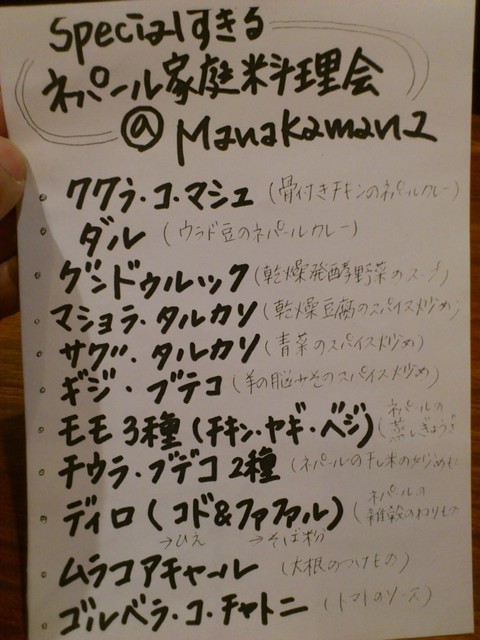 Specialすぎる
ネパール家庭料理会
@ Manakamana
ククラ・コ・マシュ (骨付きチキンのネパールカレー)
ダル (ウラド豆のネパールカレー)
グンドゥルック (乾燥発酵野菜のスープ)
マショラ・タルカリ (乾燥豆腐のスパイス炒め)
サグ・タルカリ (青菜のスパイス炒め)
ギジ・ブテコ (羊の脳みそのスパイス炒め)
モモ3種 (チキン・ヤギ・ベジ) (ネパールの蒸しぎょうざ
チウラ・ブテコ 2種 (ネパールの干し米の炒めもの
ディロ (コド&ファファル) (ネパールの雑穀のねりもの
→ひえ →そば粉
ムラコアチャール (大根のつけもの)
ゴルベラ・コ・チャトニ (トマトのソース)